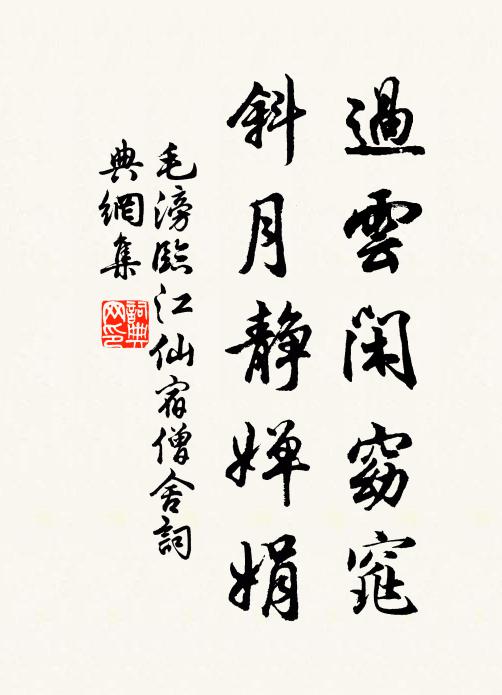 過雲閑窈窕
斜月靜嬋娟
毛滂臨江仙宿僧舍詞
典網集
詞典網印